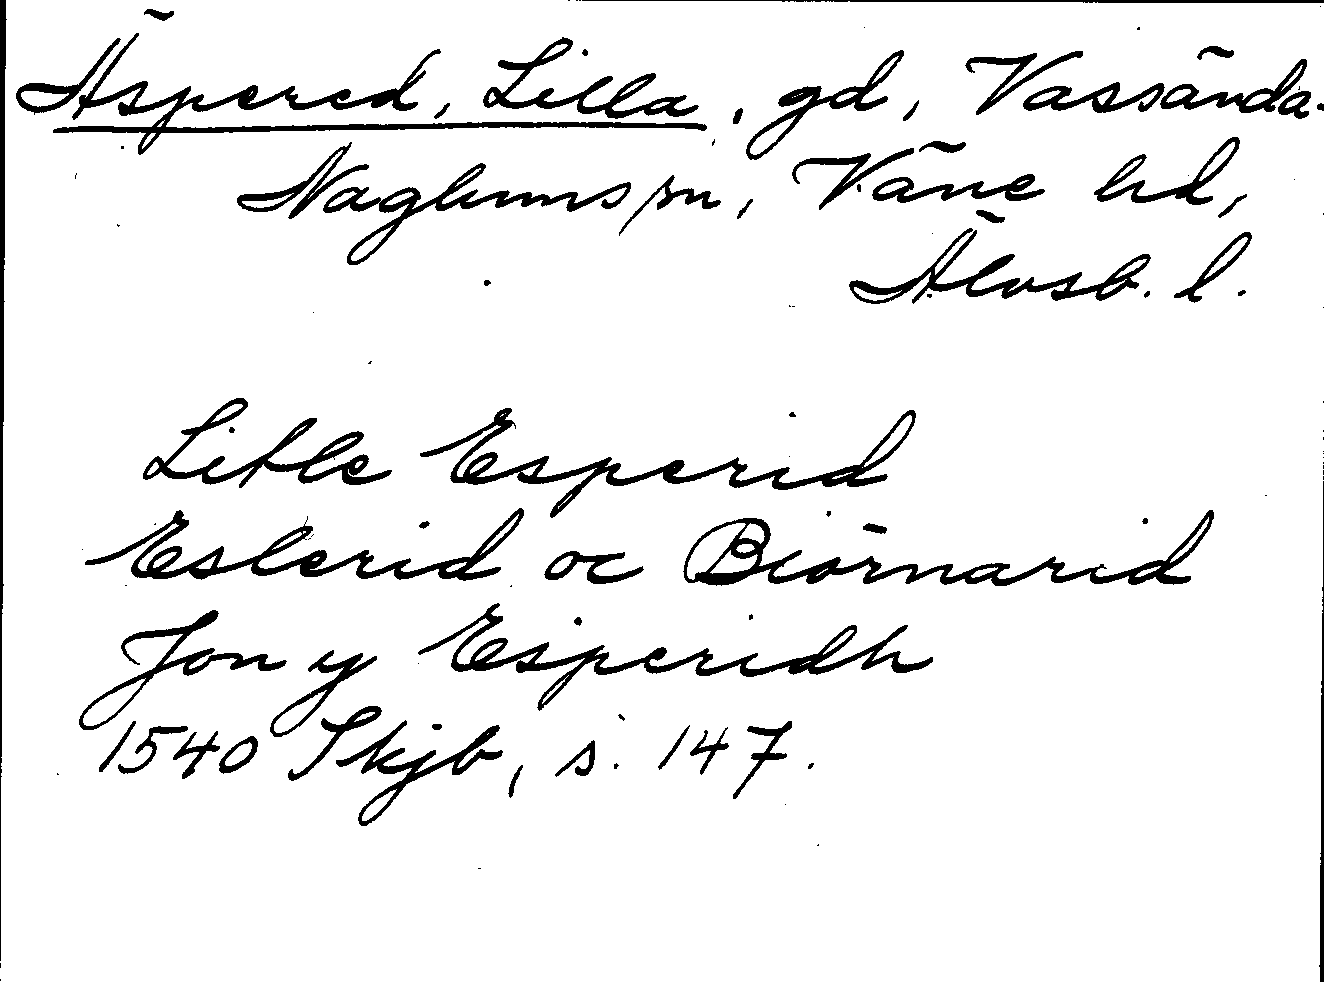 Äspered, Lilla, gd, Vassända-
Naglums sn, Väne hd,
Älvsb. l.
Litle Esperid
Eslerid oc Biörnarid
Jon y Esperidh
1540 Skjb, s. 147.